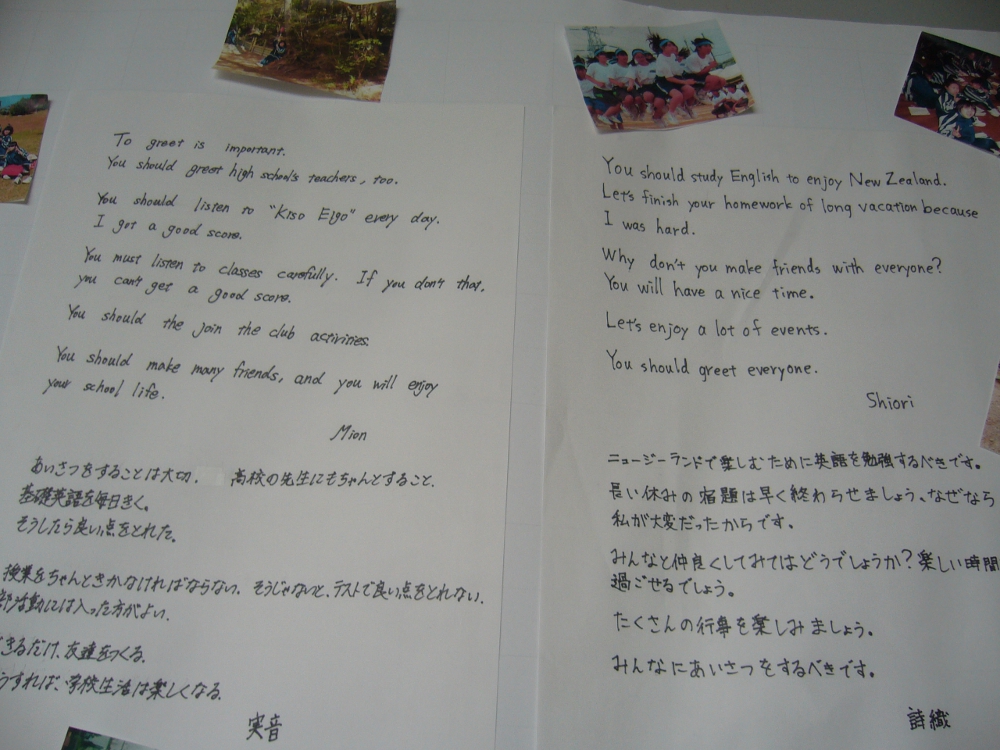 To greet is important.
You should greet high school's teachers, too.
You should listen to "Kiso Eigo" every day.
I got a good score.
You must listen to classes carefully. If you don't that,
you can't get a good score.
You should the join the club activities.
You should make many friends, and you will enjoy
your school life.
Mion
あいさつをすることは大切. 高校の先生にもちゃんとすること.
基礎英語を毎日きく。
そうしたら良い点をとれた。
授業をちゃんときかなければならない. そうじゃないと、テストで良い点をとれない.
部活動には入った方がよい.
きるだけ、友達をつくる.
うすれば、学校生活は楽しくなる.
実音
You should study English to enjoy New Zealand.
Let's finish your homework of long vacation because
I was hard.
Why don't you make friends with everyone?
You will have a nice time.
Let's enjoy a lot of events.
You should greet everyone.
Shiori
ニュージーランドで楽しむために英語を勉強するべきです。
長い休みの宿題は早く終わらせましょう、なぜなら
私が大変だったからです。
みんなと仲良くしてみてはどうでしょうか?楽しい時間
過ごせるでしょう。
たくさんの行事を楽しみましょう。
みんなにあいさつをするべきです。
詩織